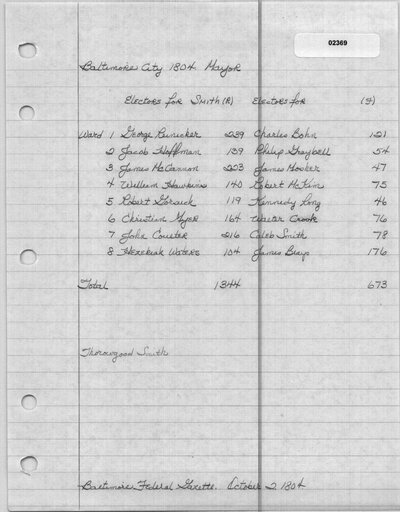 02369
Baltimore City 1804 Mayor
Electors for Smith (R) Electors for (F)
Ward 1 George Reinicker 239 Charles Bohn 121
2 Jacob Hoffman 139 Philip Graybell 54
3 James McCannon 223 James Hooker 47
4 William Hawkins 140 Robert McKim 75
5 Robert Gorsuch 119 Kennedy Long 46
6 Christian Myer 164 Walter Crook 76
7 John Coulter 216 Caleb Smith 78
8 Hezekiah Waters 104 James 176
Total 1344 673
Thorowgood Smith
Baltimore Federal Gazette. October 2, 1804